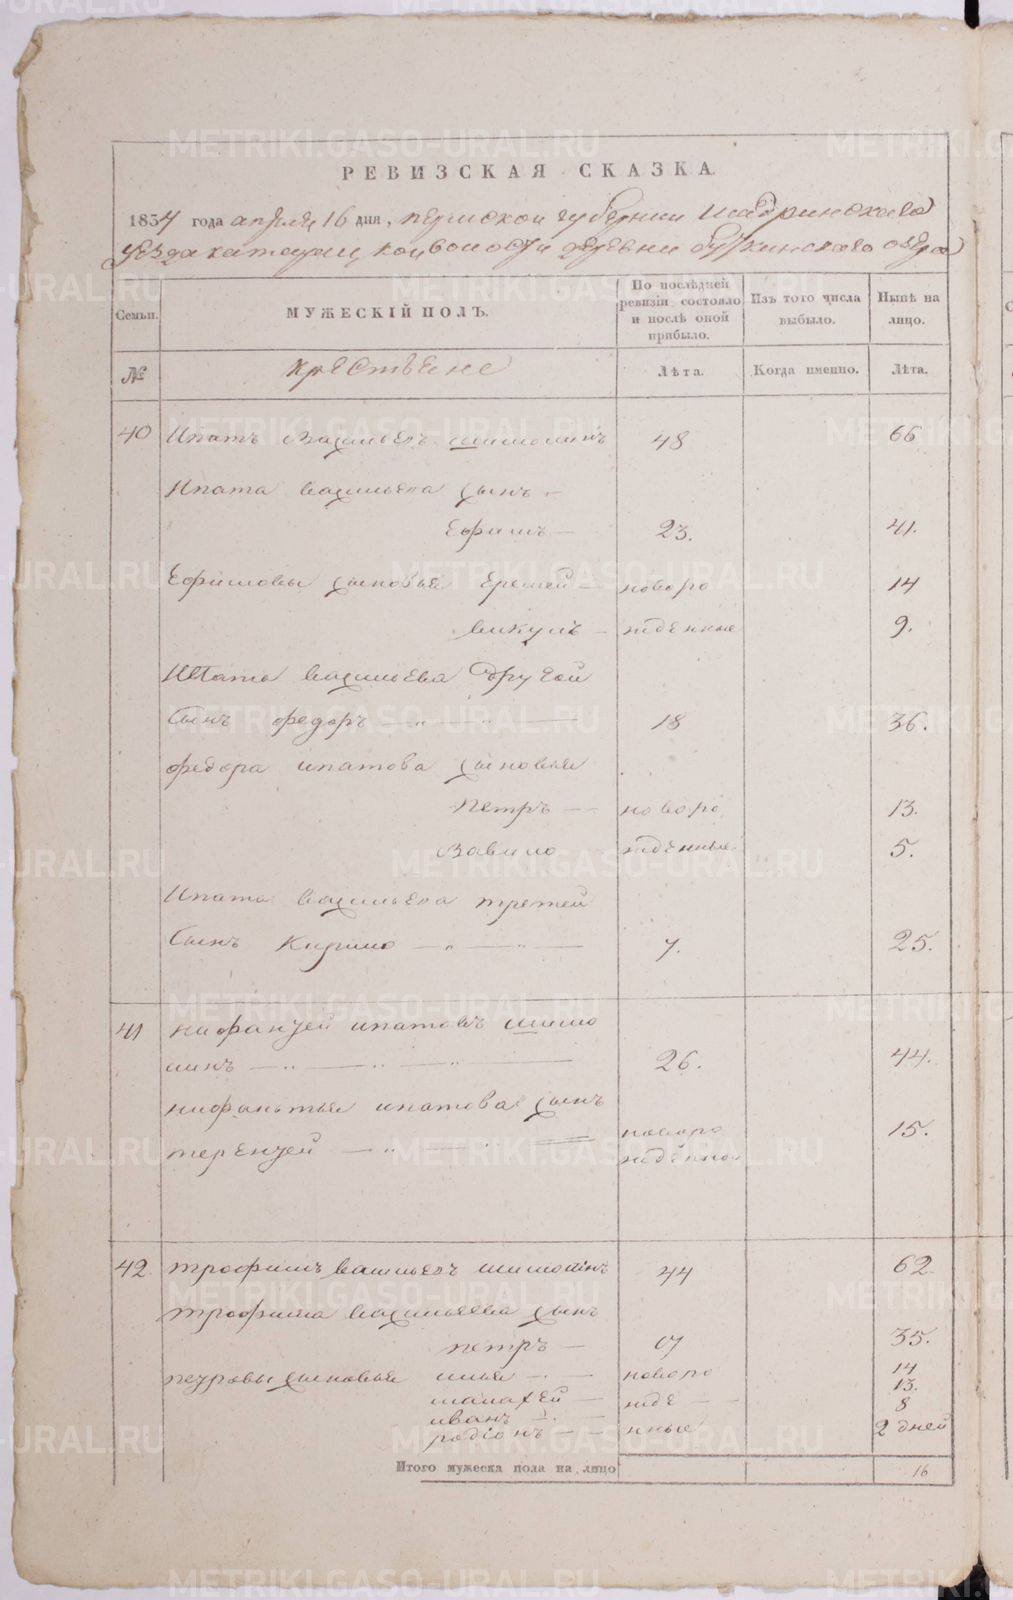 РЕВИЗСКАЯ СКАЗКА.
1834 года апреля 16 дня, пермской губернии шадринскаго
уезда катайской волости деревни буткинскаго озера
Семьи.
МУЖЕСКІЙ ПОЛЪ.
По последней ревизіи состояло и послѣ оной прибыло.
Изъ того числа выбыло.
Нынѣ на лицо.
№
крестьяне
Лѣта.
Когда именно.
Лѣта.
40 Ипатъ Васильевъ шимолинъ 48 66
Ипата васильева сынъ
Ефимъ — 23. 41.
Ефимовы сыновья Еремей — новоро 14
викулъ — жденные 9.
Ипата васильева другой
Сынъ федоръ — „ — „ — 18 36.
федора ипатова сыновья
петръ — новоро 13.
Вавило жденные 5.
Ипата васильева третей
Сынъ Кирило — „ — „ — 7. 25.
41 нифантей ипатовъ шимо
линъ — „ — „ — „ — 26. 44.
нифантья ипатова сынъ
терентей — „ — новоро 15.
жденной
42. трофимъ васильевъ шимолинъ 44 62
трофима васильева сынъ
петръ — 17 35.
петровы сыновья илья — новоро 14
малафей — жде — 13.
иванъ — 8
родіонъ — нные 2 дней
Итого мужеска пола на лицо 16
METRIKI.GASO-URAL.RU